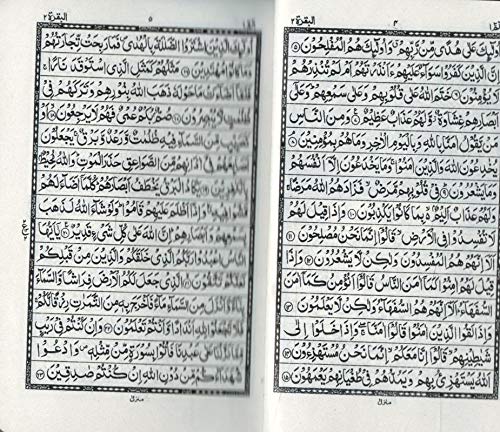 البقرة ٢
٤
اُولٰٓئِكَ عَلٰى هُدًى مِّنْ رَّبِّهِمْ وَاُولٰٓئِكَ هُمُ الْمُفْلِحُوْنَ ۵
اِنَّ الَّذِيْنَ كَفَرُوْا سَوَآءٌ عَلَيْهِمْ ءَاَنْذَرْتَهُمْ اَمْ لَمْ تُنْذِرْهُمْ لَا
يُؤْمِنُوْنَ ۶ خَتَمَ اللّٰهُ عَلٰى قُلُوْبِهِمْ وَعَلٰى سَمْعِهِمْ وَعَلٰٓى
اَبْصَارِهِمْ غِشَاوَةٌ وَّلَهُمْ عَذَابٌ عَظِيْمٌ ۷ وَمِنَ النَّاسِ
مَنْ يَّقُوْلُ اٰمَنَّا بِاللّٰهِ وَبِالْيَوْمِ الْاٰخِرِ وَمَا هُمْ بِمُؤْمِنِيْنَ ۸
يُخٰدِعُوْنَ اللّٰهَ وَالَّذِيْنَ اٰمَنُوْا وَمَا يَخْدَعُوْنَ اِلَّآ اَنْفُسَهُمْ
وَمَا يَشْعُرُوْنَ ۹ فِيْ قُلُوْبِهِمْ مَّرَضٌ فَزَادَهُمُ اللّٰهُ مَرَضًا
وَلَهُمْ عَذَابٌ اَلِيْمٌ بِمَا كَانُوْا يَكْذِبُوْنَ ۱۰ وَاِذَا قِيْلَ لَهُمْ
لَا تُفْسِدُوْا فِي الْاَرْضِ قَالُوْٓا اِنَّمَا نَحْنُ مُصْلِحُوْنَ ۱۱
اَلَآ اِنَّهُمْ هُمُ الْمُفْسِدُوْنَ وَلٰكِنْ لَّا يَشْعُرُوْنَ ۱۲ وَاِذَا قِيْلَ
لَهُمْ اٰمِنُوْا كَمَآ اٰمَنَ النَّاسُ قَالُوْٓا اَنُؤْمِنُ كَمَآ اٰمَنَ
السُّفَهَآءُ اَلَآ اِنَّهُمْ هُمُ السُّفَهَآءُ وَلٰكِنْ لَّا يَعْلَمُوْنَ ۱۳
وَاِذَا لَقُوا الَّذِيْنَ اٰمَنُوْا قَالُوْٓا اٰمَنَّا وَاِذَا خَلَوْا اِلٰى
شَيٰطِيْنِهِمْ قَالُوْٓا اِنَّا مَعَكُمْ اِنَّمَا نَحْنُ مُسْتَهْزِءُوْنَ ۱۴
اَللّٰهُ يَسْتَهْزِئُ بِهِمْ وَيَمُدُّهُمْ فِيْ طُغْيَانِهِمْ يَعْمَهُوْنَ ۱۵
منزل
البقرة ٢
٥
اُولٰٓئِكَ الَّذِيْنَ اشْتَرَوُا الضَّلٰلَةَ بِالْهُدٰى فَمَا رَبِحَتْ تِّجَارَتُهُمْ
وَمَا كَانُوْا مُهْتَدِيْنَ ۱۶ مَثَلُهُمْ كَمَثَلِ الَّذِى اسْتَوْقَدَ نَارًا
فَلَمَّآ اَضَآءَتْ مَا حَوْلَهٗ ذَهَبَ اللّٰهُ بِنُوْرِهِمْ وَتَرَكَهُمْ فِيْ
ظُلُمٰتٍ لَّا يُبْصِرُوْنَ ۱۷ صُمٌّ بُكْمٌ عُمْيٌ فَهُمْ لَا يَرْجِعُوْنَ ۱۸ اَوْ
كَصَيِّبٍ مِّنَ السَّمَآءِ فِيْهِ ظُلُمٰتٌ وَّرَعْدٌ وَّبَرْقٌ يَجْعَلُوْنَ
اَصَابِعَهُمْ فِيْٓ اٰذَانِهِمْ مِّنَ الصَّوَاعِقِ حَذَرَ الْمَوْتِ وَاللّٰهُ مُحِيْطٌۢ
بِالْكٰفِرِيْنَ ۱۹ يَكَادُ الْبَرْقُ يَخْطَفُ اَبْصَارَهُمْ كُلَّمَآ اَضَآءَ لَهُمْ
مَّشَوْا فِيْهِ وَاِذَآ اَظْلَمَ عَلَيْهِمْ قَامُوْا وَلَوْ شَآءَ اللّٰهُ لَذَهَبَ
بِسَمْعِهِمْ وَاَبْصَارِهِمْ اِنَّ اللّٰهَ عَلٰى كُلِّ شَيْءٍ قَدِيْرٌ ۲۰ يٰٓاَيُّهَا
النَّاسُ اعْبُدُوْا رَبَّكُمُ الَّذِيْ خَلَقَكُمْ وَالَّذِيْنَ مِنْ قَبْلِكُمْ
لَعَلَّكُمْ تَتَّقُوْنَ ۲۱ الَّذِيْ جَعَلَ لَكُمُ الْاَرْضَ فِرَاشًا وَّالسَّمَآءَ
بِنَآءً وَّاَنْزَلَ مِنَ السَّمَآءِ مَآءً فَاَخْرَجَ بِهٖ مِنَ الثَّمَرٰتِ رِزْقًا لَّكُمْ
فَلَا تَجْعَلُوْا لِلّٰهِ اَنْدَادًا وَّاَنْتُمْ تَعْلَمُوْنَ ۲۲ وَاِنْ كُنْتُمْ فِيْ رَيْبٍ
مِّمَّا نَزَّلْنَا عَلٰى عَبْدِنَا فَاْتُوْا بِسُوْرَةٍ مِّنْ مِّثْلِهٖ وَادْعُوْا
شُهَدَآءَكُمْ مِّنْ دُوْنِ اللّٰهِ اِنْ كُنْتُمْ صٰدِقِيْنَ ۲۳
منزل